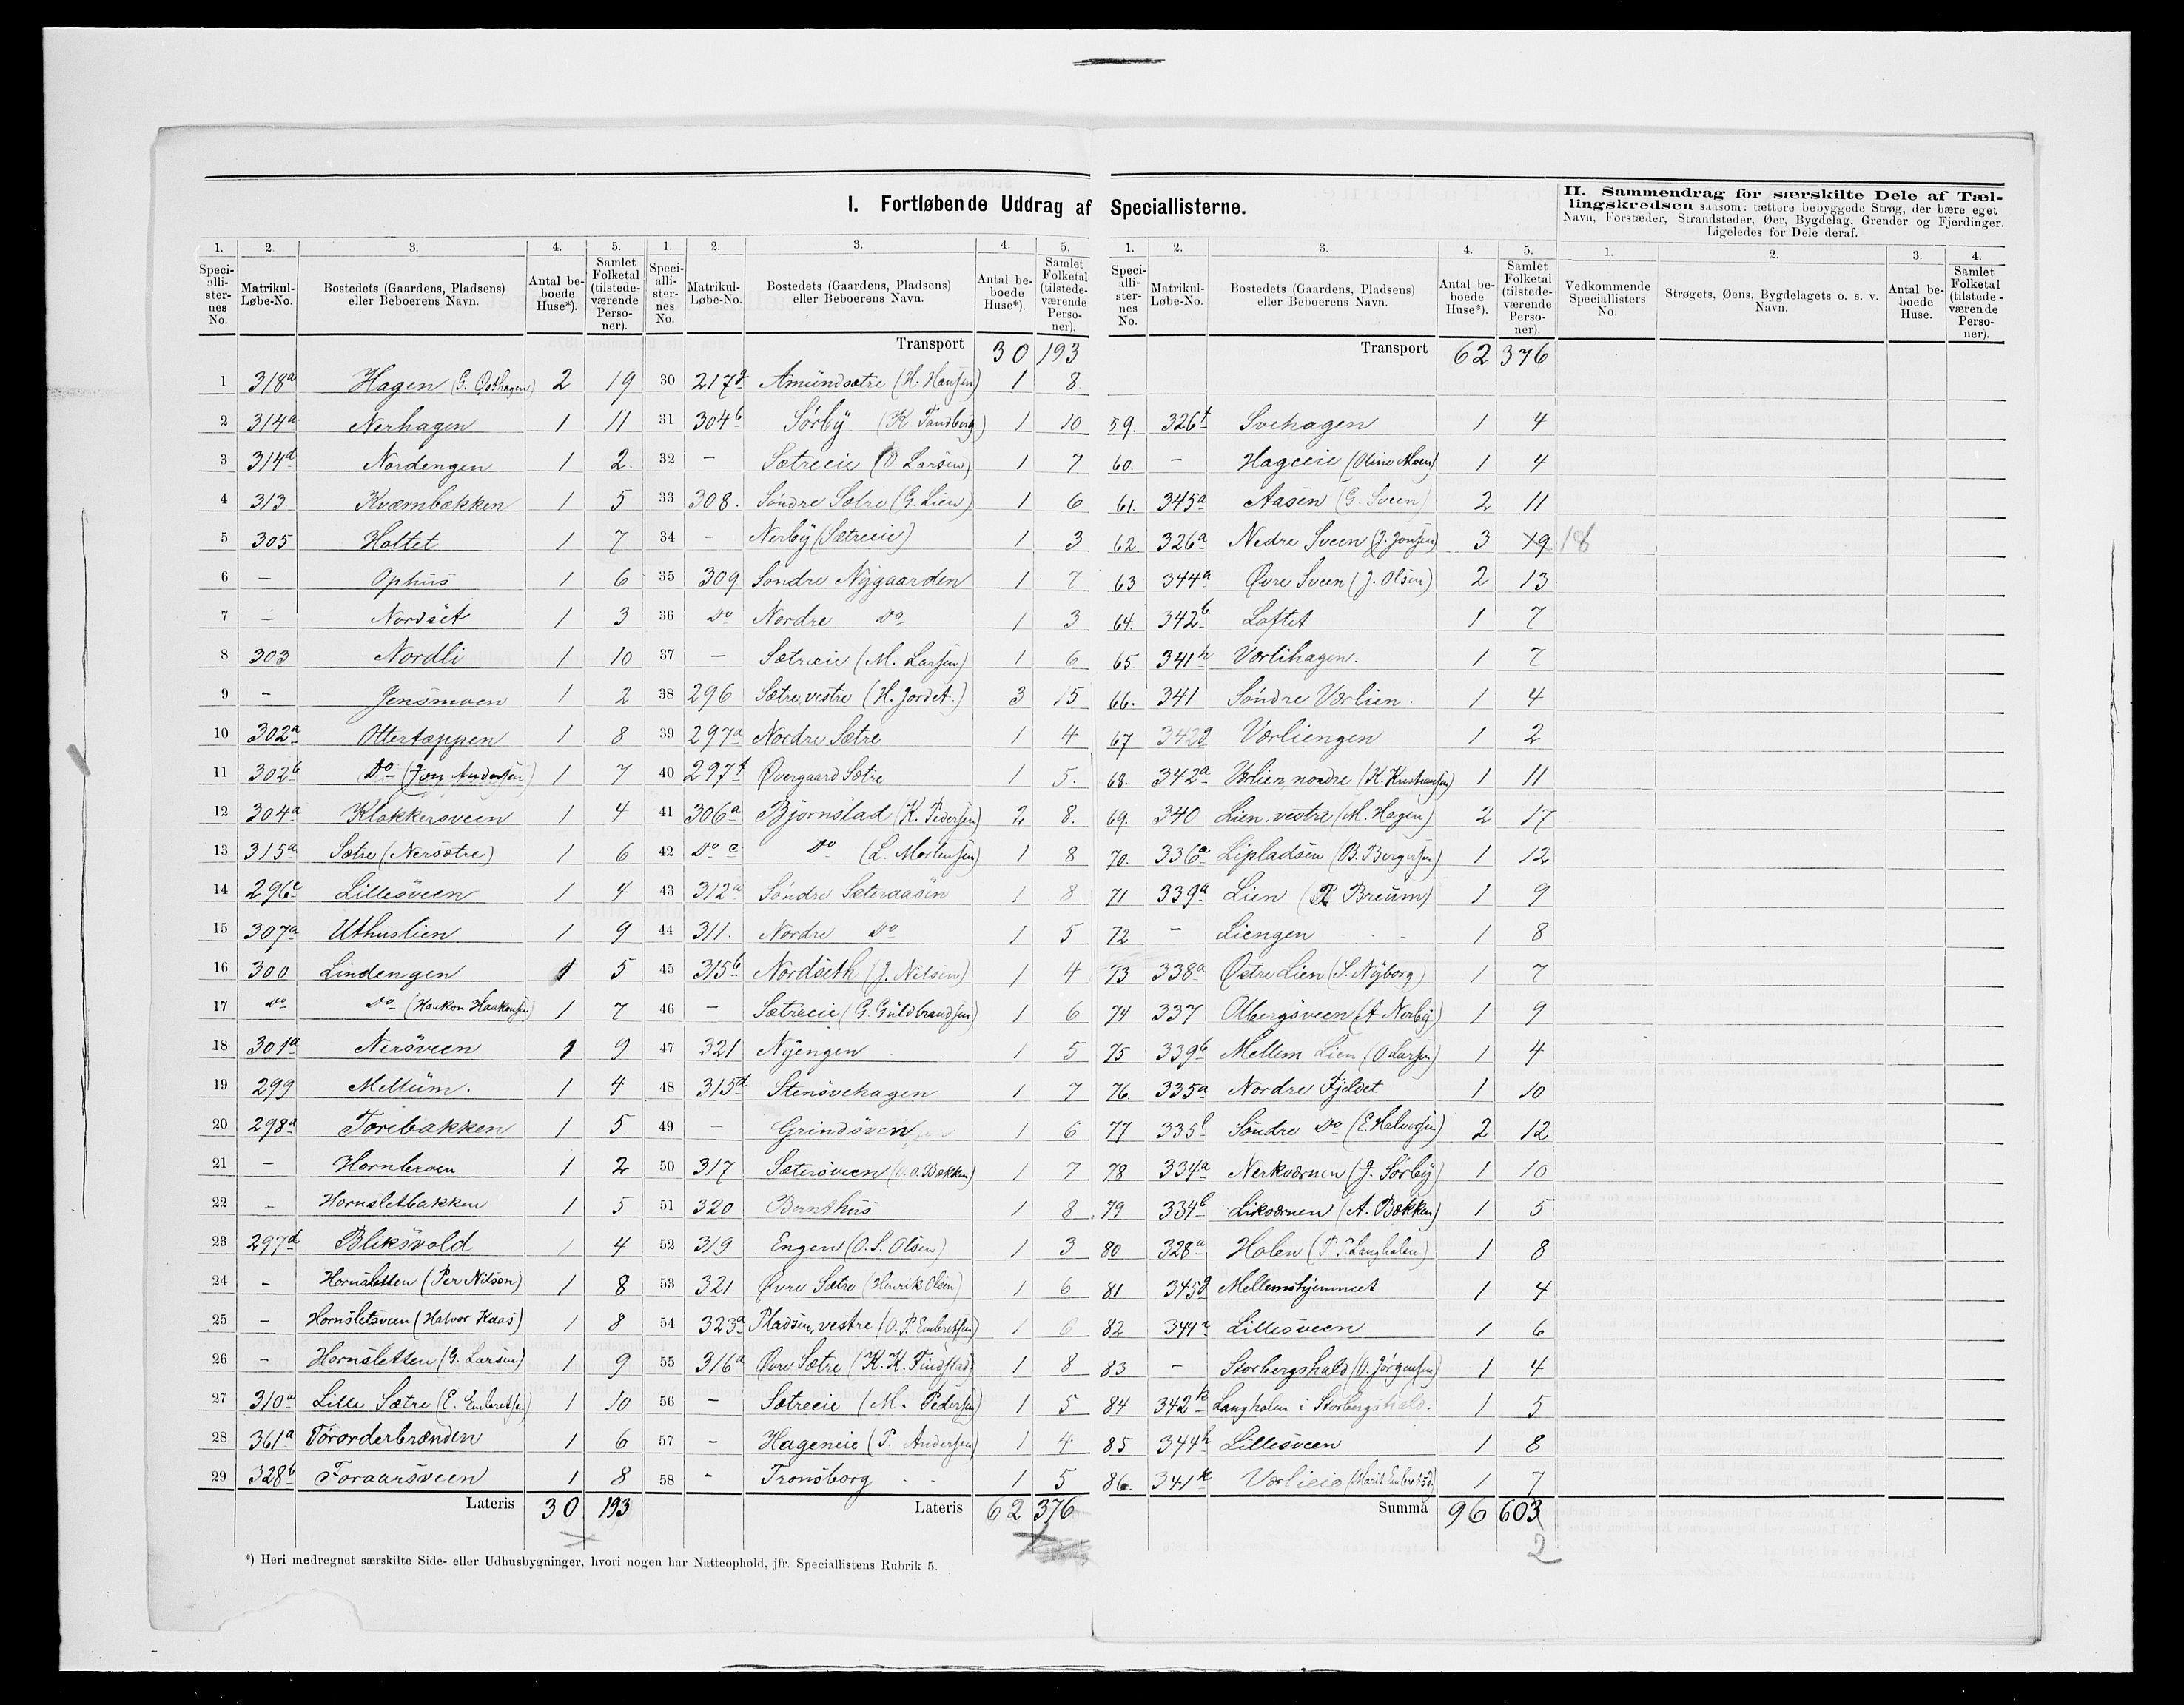 I. Fortløbende Uddrag af Speciallisterne.
II. Sammendrag for særskilte Dele af Tæl-
lingskredsen saasom: tættere bebyggede Strøg, der bære eget
Navn, Forstæder, Strandsteder, Øer, Bygdelag, Grender og Fjerdinger.
Ligeledes for Dele deraf.
1. 2. 3. 4. 5.
Speci-alli-ster-nes No. Matrikul-Løbe-No. Bostedets (Gaardens, Pladsens) eller Beboerens Navn. Antal be-boede Huse*). Samlet Folketal (tilstede-værende Perso-ner).
1 318a Hagen (G. Østhagen) 2 19
2 314a Nerhagen 1 11
3 314d Nordengen 1 2.
4 313 Kværnbækken 1 5
5 305 Holtet 1 7
6 — Ophüs 1 6
7 — Nordset 1 3
8 303 Nordli 1 10
9 — Jensmoen 1 2
10 302a Ottertoppen 1 8
11 302b Do (Jon Andersen) 1 7
12 304a Klokkersveen 1 4
13 315a Sætre (Nersætre) 1 6
14 296c Lillesveen 1 4
15 307a Uthuslien 1 9
16 300 Lindengen 1 5
17 Do Do (Haakon Haakonsen) 1 7
18 301a Nersveen 1 9
19 299 Mellüm. 1 4
20 298a Torebakken 1 5
21 — Hornmoen 1 2
22 — Hornsletbakken 1 5
23 297d Bliksvold 1 4
24 — Hornsletten (Per Nilson). 1 8
25 — Hornsletsveen (Halvor Kaas) 1 8
26 — Hornsletten (G. Larsen) 1 9
27 310a Lille Sætre (E. Embretsen) 1 10
28 361a Förorderbrænden 1 6
29 328b Foraarsveen 1 8
Lateris 30 193
1. 2. 3. 4. 5.
Speci-alli-ster-nes No. Matrikul-Løbe-No. Bostedets (Gaardens, Pladsens) eller Beboerens Navn. Antal be-boede Huse*). Samlet Folketal (tilstede-værende Perso-ner).
Transport 30 193
30 217a Amündsætre (H. Hansen) 1 8.
31 304b Sørby (K. Tandberg) 1 10
32 — Sætreeie (O Larsen) 1 7
33 308. Søndre Sætre (G. Lien) 1 6
34 — Nerby (Sætreeie) 1 3
35 309 Søndre Nygaarden 1 7
36 Do Nordre Do 1 3
37 — Sætreeie (M. Larsen) 1 6
38 296 Sætre, vestre (H. Jordet.) 3 15
39 297a Nordre Sætre 1 4
40 297f Øvergaard Sætre 1 5.
41 306a Bjørnstad (K. Pedersen) 2 8.
42 Do c Do (L. Mortensen) 1 8
43 312a Søndre Sæteraasen 1 8
44 311. Nordre Do 1 5
45 315b Nordseth (J. Nilsen) 1 4
46 — Sætreeie (G. Güldbrandsen) 1 6
47 321 Nyengen 1 5
48 315d Stensvehagen 1 7
49 — Grindsven 1 6
50 317 Sætersveen (O. O. Bakken) 1 7
51 320 Bernthüs 1 8
52 319 Engen (O. S. Olsen) 1 3
53 321 Øvre Sætre (Henrik Olsen) 1 6
54 323a Pladsen, vestre (O. P. Embretsen) 1 6
55 316a Øvre Sætre (K. K. Findstad) 1 8
56 — Sætreeie (M. Pedersen) 1 5
57 — Hageneie (P. Andersen) 1 4
58 — Tronsborg 1 5
Lateris 62 376
1. 2. 3. 4. 5.
Speci-alli-ster-nes No. Matrikul-Løbe-No. Bostedets (Gaardens, Pladsens) eller Beboerens Navn. Antal be-boede Huse*). Samlet Folketal (tilstede-værende Perso-ner).
Transport 62 376
59. 326f Svehagen 1 4
60. — Hageeie (Oline Moen) 1 4
61. 345a Aasen (G. Sveen) 2 11
62. 326a Nedre Sveen (J. Jonsen) 3 19 18
63 344a Øvre Sveen (J. Olsen) 2 13
64. 342b Loftet 1 7
65. 341h Værlihagen. 1 7
66. 341 Søndre Værlien. 1 4
67 342d Værliengen 1 2
68. 342a Værlien, nordre (K. Kristiansen) 1 11
69. 340 Lien. vestre (M. Hagen) 2 17
70. 336a Lipladsen (B. Bergersen) 1 12
71 339a Lien (P Breüm) 1 9
72 — Liengen 1 8
73 338a Østre Lien (S. Nyborg) 1 7
74 337 Olbergsveen (A Nerby) 1 9
75 339b Mellem Lien (O Larsen) 1 4
76. 335a Nordre Fjeldet 1 10
77 335b Søndre Do (E. Halvorsen) 2 12
78 334a Nerkværnen (J. Sørby) 1 10
79 334b Likværnen (A. Bækken) 1 5
80 328a Holen (P. P. Langholen) 1 8
81 345d Mellemshjemmet 1 4
82 344 Lillesveen 1 6
83 — Storbergshald (O. Jørgensen) 1 4
84 342 Langholen i Storbergshald. 1 5
85 344h Lillesveen 1 8
86. 341k Værlieie (Marit Embretsd.) 1 7
Summa 96 603
2
1. 2. 3. 4.
Vedkommende Speciallisters No. Strøgets, Øens, Bygdelagets o. s. v. Navn. Antal be-boede Huse. Samlet Folketal (tilstede-værende Perso-ner).
*) Heri medregnet særskilte Side- eller Udhusbygninger, hvori nogen har Natteophold, jfr. Speciallistens Rubrik 5.